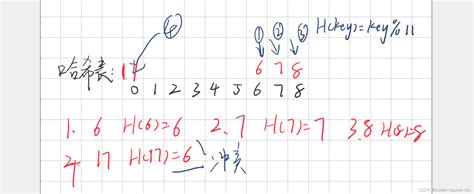 ④ ① ② ③ H(key)=key%11
哈希表: 17 6 7 8
0 1 2 3 4 5 6 7 8
1. 6 H(6)=6 2. 7 H(7)=7 3. 8 H(8)=8
4. 17 H(17)=6 冲突